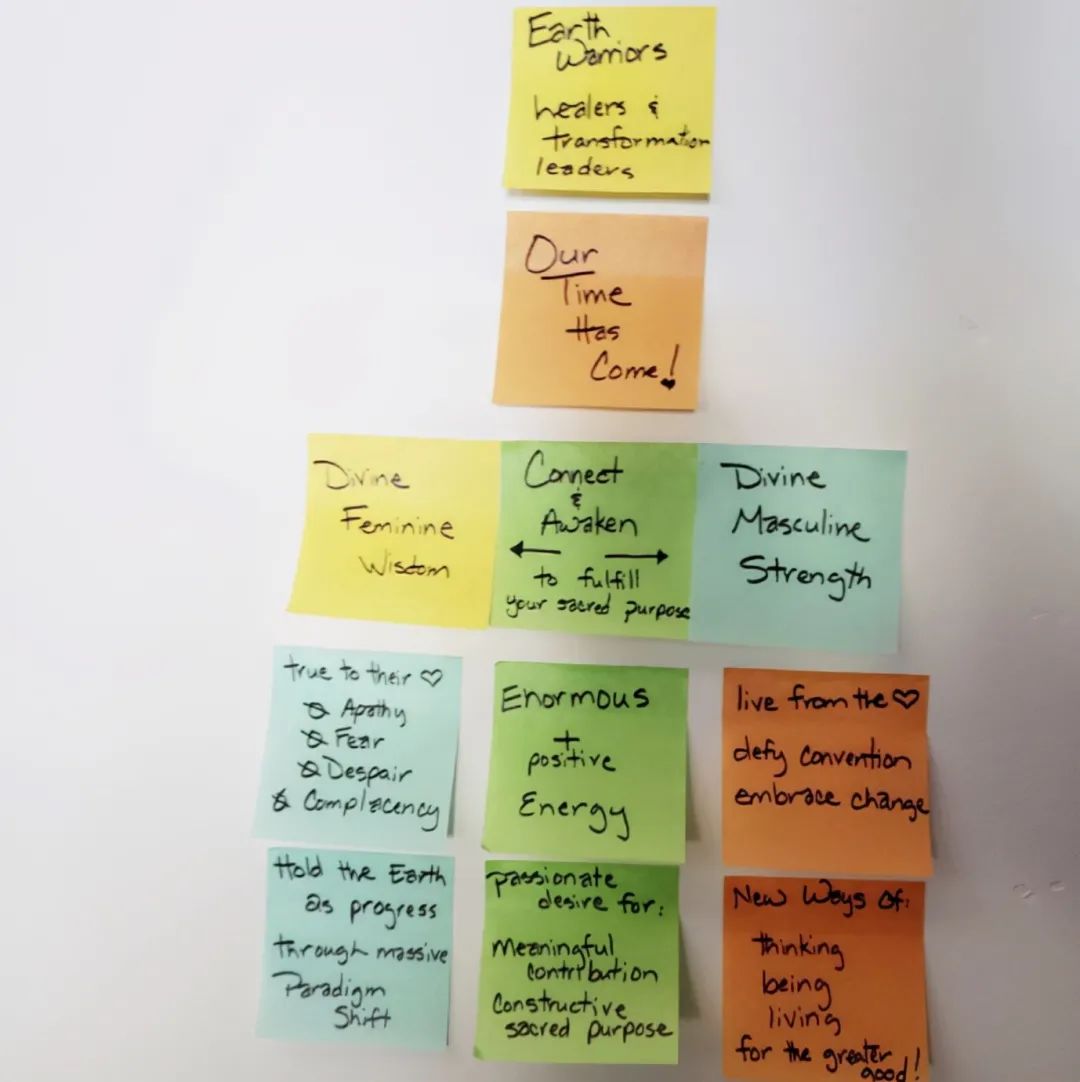 Earth
Warriors
healers &
transformation
leaders
Our
Time
Has
Come!
Divine
Feminine
Wisdom
Connect
&
Awaken
← →
to fulfill
your sacred purpose
Divine
Masculine
Strength
true to their ♡
Ø Apathy
Ø Fear
Ø Despair
Ø Complacency
Enormous
+
positive
Energy
live from the ♡
defy convention
embrace change
Hold the Earth
as progress
through massive
Paradigm
Shift
passionate
desire for:
Meaningful
contribution
Constructive
sacred purpose
New Ways of:
thinking
being
living
for the greater
good!